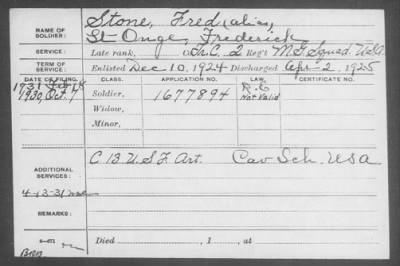 NAME OF SOLDIER: Stone, Fred (alias)
St Onge, Frederick
SERVICE: Late rank, Tr. C. 2 Reg't M. G. Sqwad. USA
TERM OF SERVICE: Enlisted Dec 10, 1924 Discharged Apr 2, 1925
DATE OF FILING. CLASS. APPLICATION NO. CERTIFICATE NO.
1731 Feb 18
1930, Oct. 7 Soldier, 1677894 R.C Not Valid
Widow,
Minor,
C 13 U.S.F. Art. Cav Sch. USA
ADDITIONAL SERVICES:
4-13-31
REMARKS:
Died , 1 , at